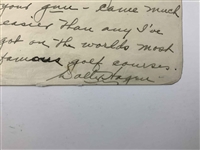 your gun - came much
easier than any I've
got on the world's most
famous golf courses.
Walter Hagen